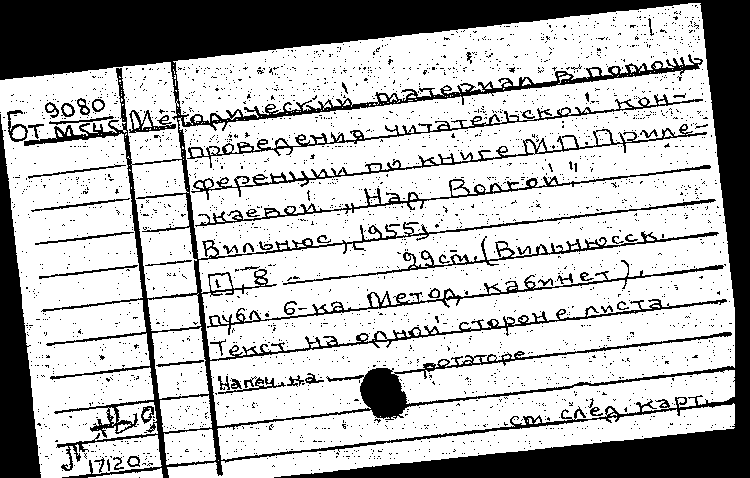 9080
Бт М545 Методический материал в помощь
проведения читательской кон-
ференции по книге М.П.Приле-
жаевой „Над Волгой".
Вильнюс, [1955].
[1], 8 29 ст. (Вильнюсск.
публ. б-ка. Метод. кабинет).
Текст на одной стороне листа.
Напеч. на ротаторе
17120 см. след. карт.